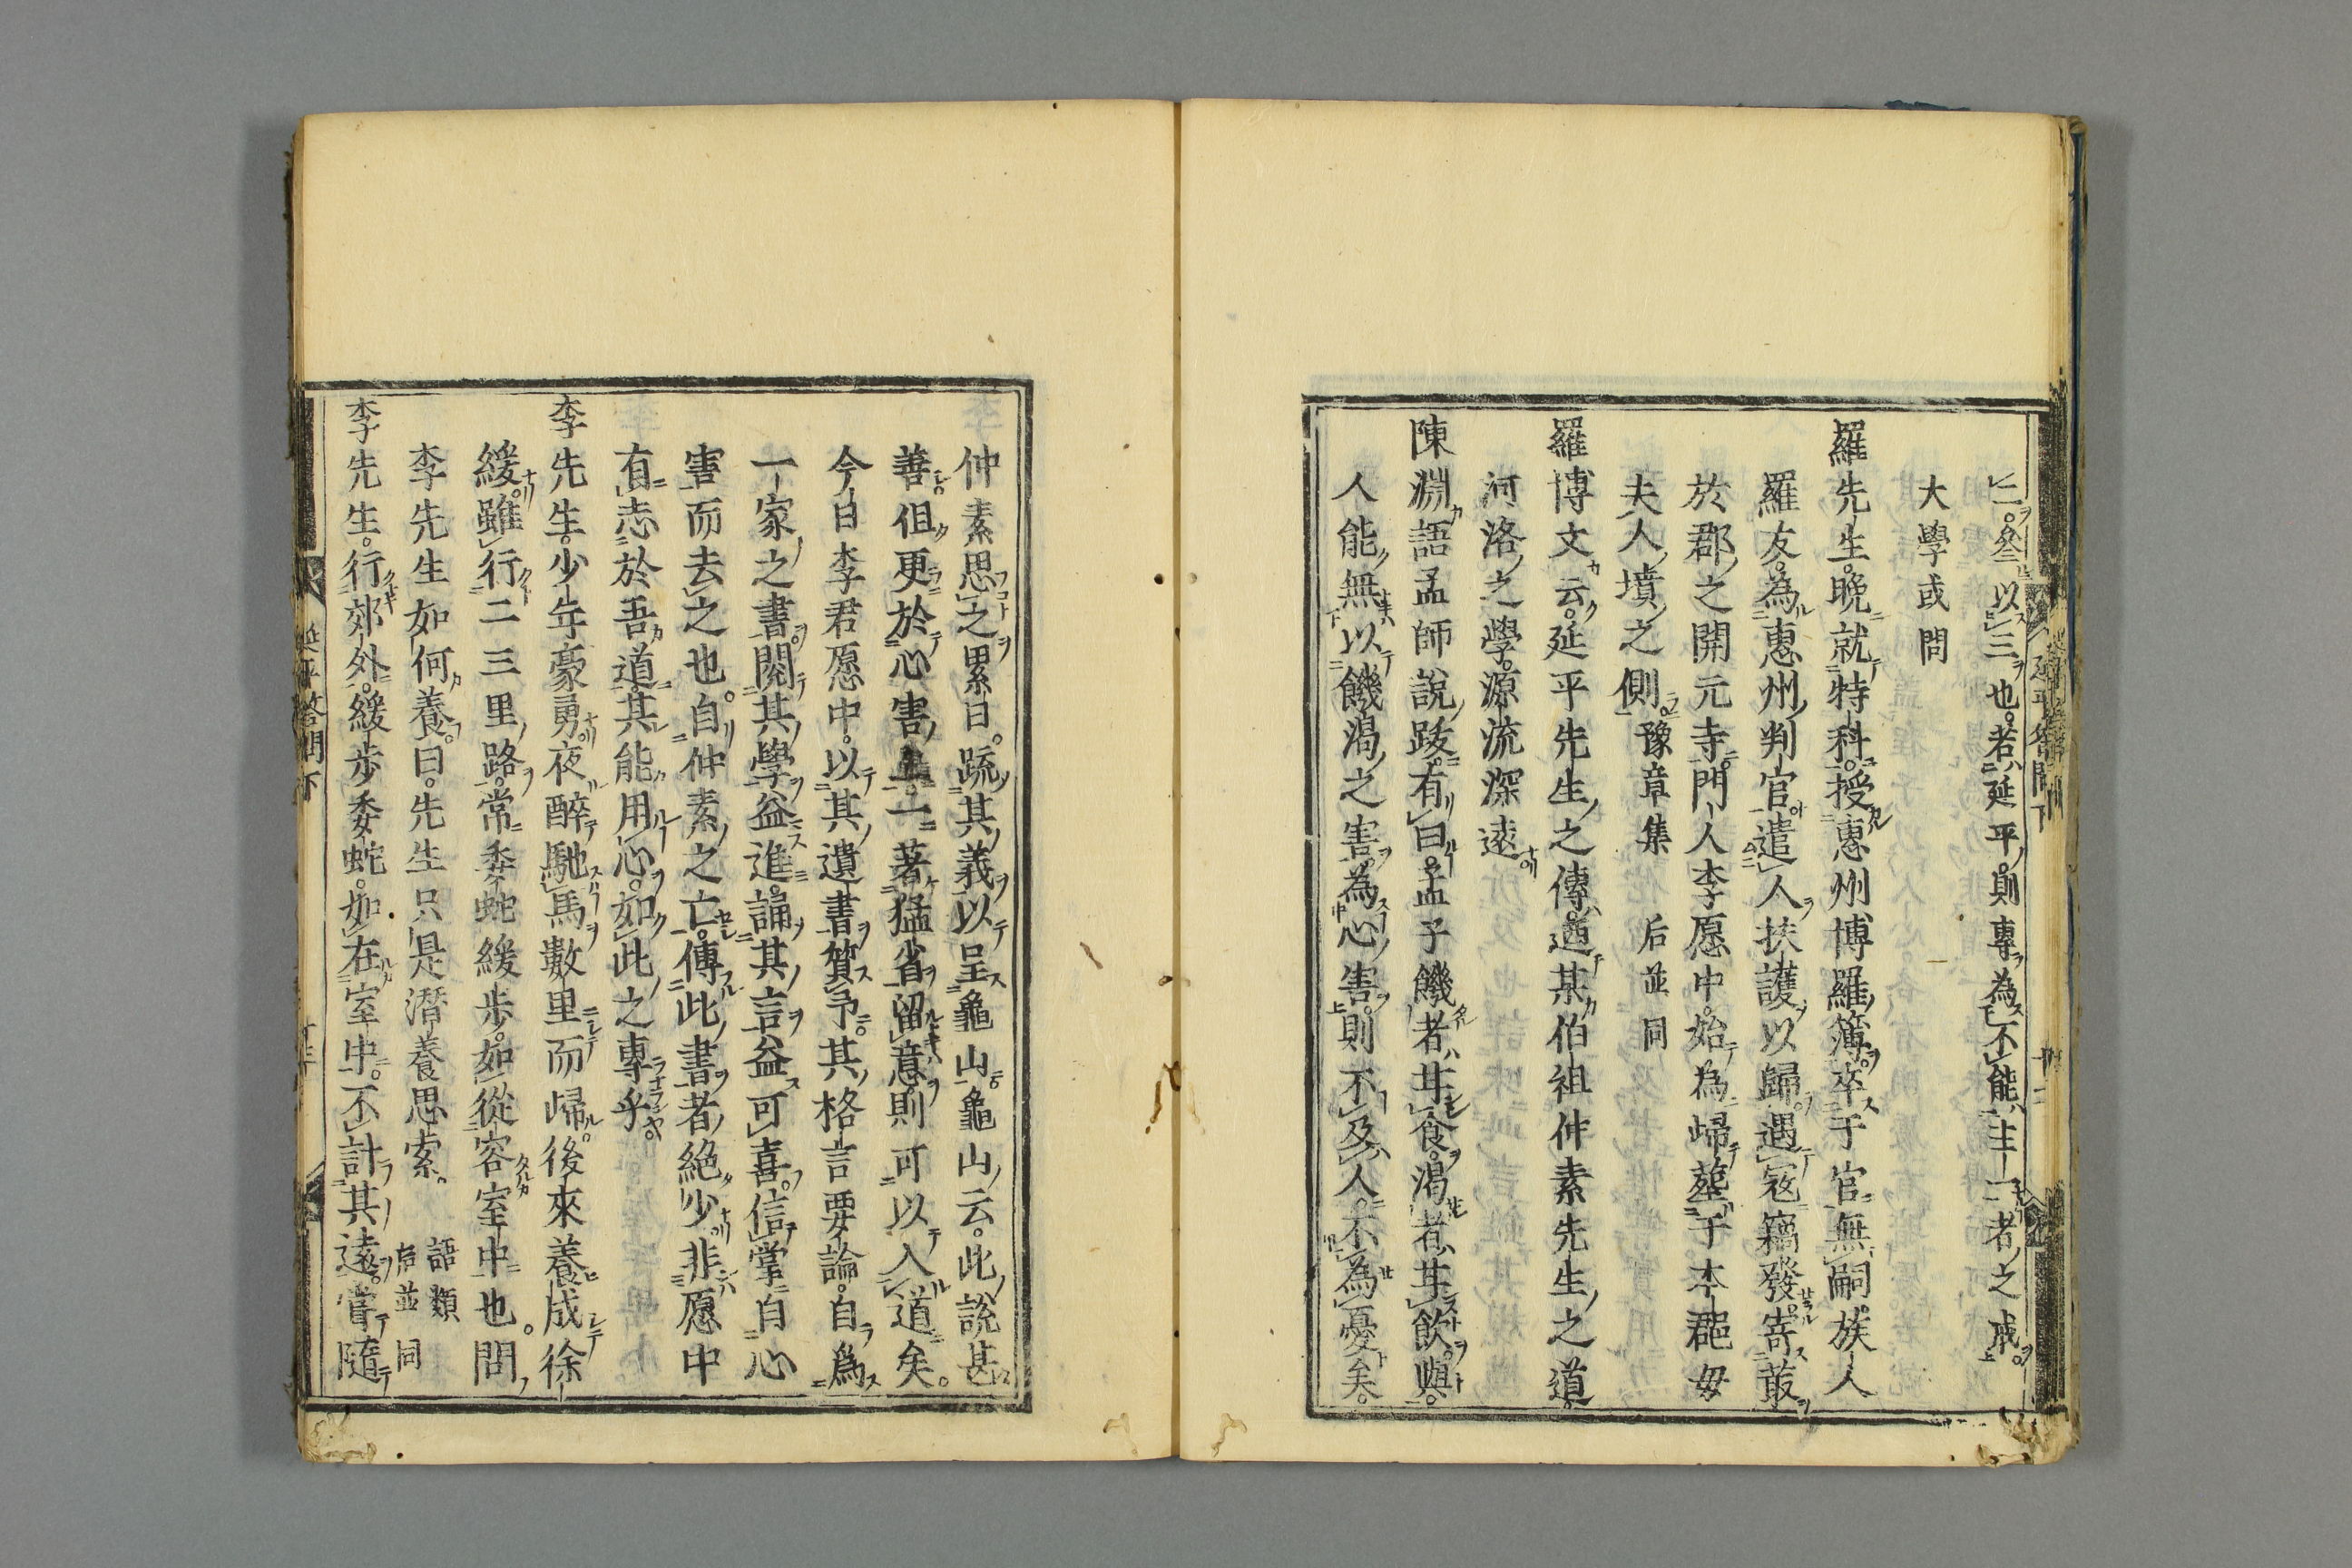 二。叄以三也。若延平。則專為不能主一者之戒。
大學或問
羅先生。晚就特科。授惠州博羅簿。卒于官。無嗣。族人
羅友。為惠州判官。遣人扶護以歸。遇寇竊發。寄菆
於郡之開元寺。門人李愿中。始為歸葬于本郡毋
夫人墳之側。豫章集 后並同
羅博文云。延平先生之傳。迺某伯祖仲素先生之道。
河洛之學。源流深遠
陳淵語孟師說跋。有曰。孟子饑者甘食。渴者甘飲。與
人能無以饑渴之害。為心害。則不及人。不為憂矣。
仲素思之累日。疏其義以呈龜山。龜山云。此說甚
善。但更於心害上。一著猛省。留意則可以入道矣。
今日李君愿中。以其遺書質予。其格言要論。自為
一家之書。閱其學益進。誦其言益可喜。信掌自心
害而去之也。自仲素之亡。傳此書者絕少。非愿中
有志於吾道。其能用心。如此之專乎。
李先生。少年豪勇。夜醉馳馬數里而歸。後來養成徐
緩。雖行二三里路。常委蛇緩步。如從容室中也。問
李先生如何養。曰。先生只是潛養思索。語類 后並同
李先生。行郊外。緩步委蛇。如在室中。不計其遠。嘗隨
延平答問下